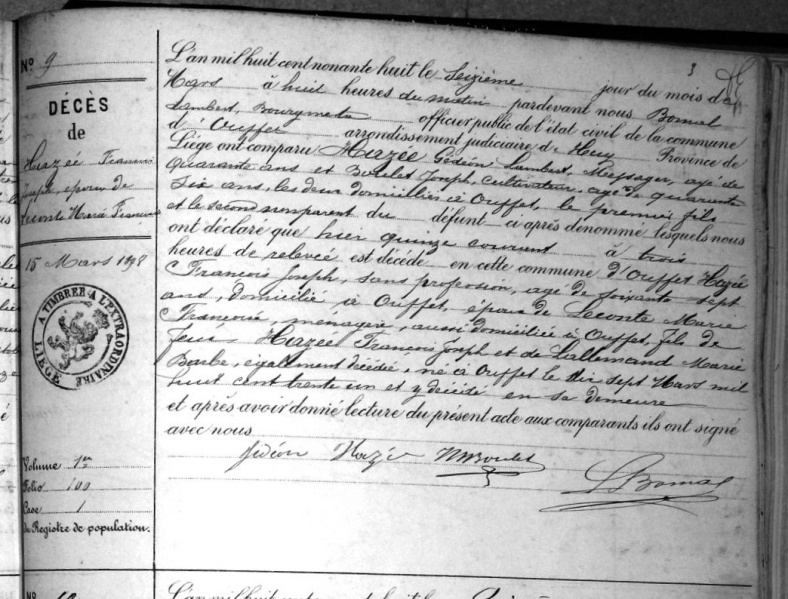 No 9
DÉCÈS
de
Hazée François
Joseph, époux de
Leconte Marie Françoise
15 Mars 1898
A TIMBRER A L'EXTRAORDINAIRE
LIÉGE
Volume 1er
Folio 100
Case 1
du Registre de population.
3
L'an mil huit cent nonante huit le Seizième jour du mois de
Mars à huit heures du matin pardevant nous Bomal
Lambert, Bourgmestre officier public de l'état civil de la commune
d'Ouffet arrondissement judiciaire de Huy Province de
Liége ont comparu Hazée Gédéon Lambert, Messager, agé de
quarante ans et Boulet Joseph, cultivateur, agé de quarante
six ans, les deux domiciliés à Ouffet, le premier fils
et le second nonparent du défunt ci après dénommé lesquels nous
ont déclaré que hier quinze courant à trois
heures de relevée est décédé en cette commune d'Ouffet Hazée
François Joseph, sans profession, agé de soixante sept
ans, domicilié à Ouffet, époux de Leconte Marie
Françoise, ménagère, aussi domiciliée à Ouffet, fils de
feus Hazée François Joseph et de Lallemand Marie
Barbe, également décédée, né à Ouffet le dix sept Mars mil
huit cent trente un et y décédé en sa demeure
et après avoir donné lecture du présent acte aux comparants ils ont signé
avec nous
Gédéon Hazée Boulet
L Bomal
No
L'an mil huit cent